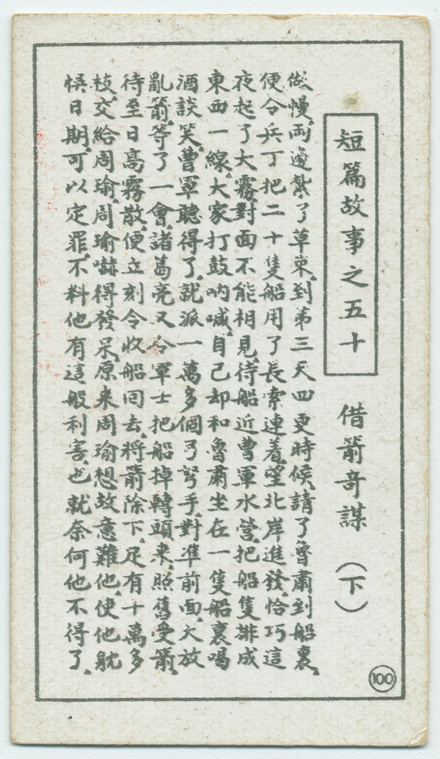 短篇故事之五十 借箭奇謀（下）
做慢，兩邊紮了草束，到第三天四更時候，請了魯肅到船裏，
便令兵丁把二十隻船用了長索連着，望北岸進發，恰巧這
夜起了大霧，對面不能相見，待船近曹軍水營，把船隻排成
東西一線，大家打鼓吶喊，自己却和魯肅坐在一隻船裏喝
酒談笑，曹軍聽得了，就派一萬多個弓弩手，對準前面，大放
亂箭，等了一會，諸葛亮又令軍士把船掉轉頭來，照舊受箭，
待至日高霧散，便立刻令收船回去，將箭除下，足有十萬多
枝，交給周瑜，周瑜嚇得發呆，原來周瑜想故意難他，使他躭
悞日期，可以定罪，不料他有這般利害，也就奈何他不得了。
100